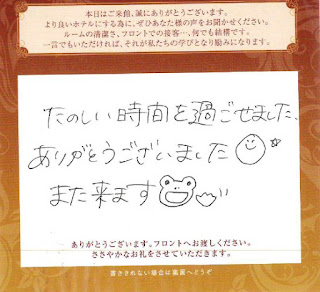 本日はご来館、誠にありがとうございます。
より良いホテルにする為に、ぜひあなた様の声をお聞かせください。
ルームの清潔さ、フロントでの接客…、何でも結構です。
一言でもいただければ、それが私たちの学びとなり励みになります。
たのしい時間を過ごせました、
ありがとうございました
また来ます
ありがとうございます。フロントへお渡しください。
ささやかなお礼をさせていただきます。
書ききれない場合は裏面へどうぞ